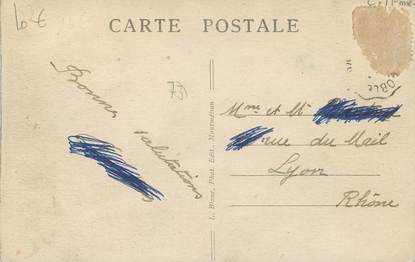 10€
CARTE POSTALE
73
Bonnes
salutations
L. Blanc, Phot. Edit., Montmélian
Mme et Mr
rue du Mail
Lyon
Rhône